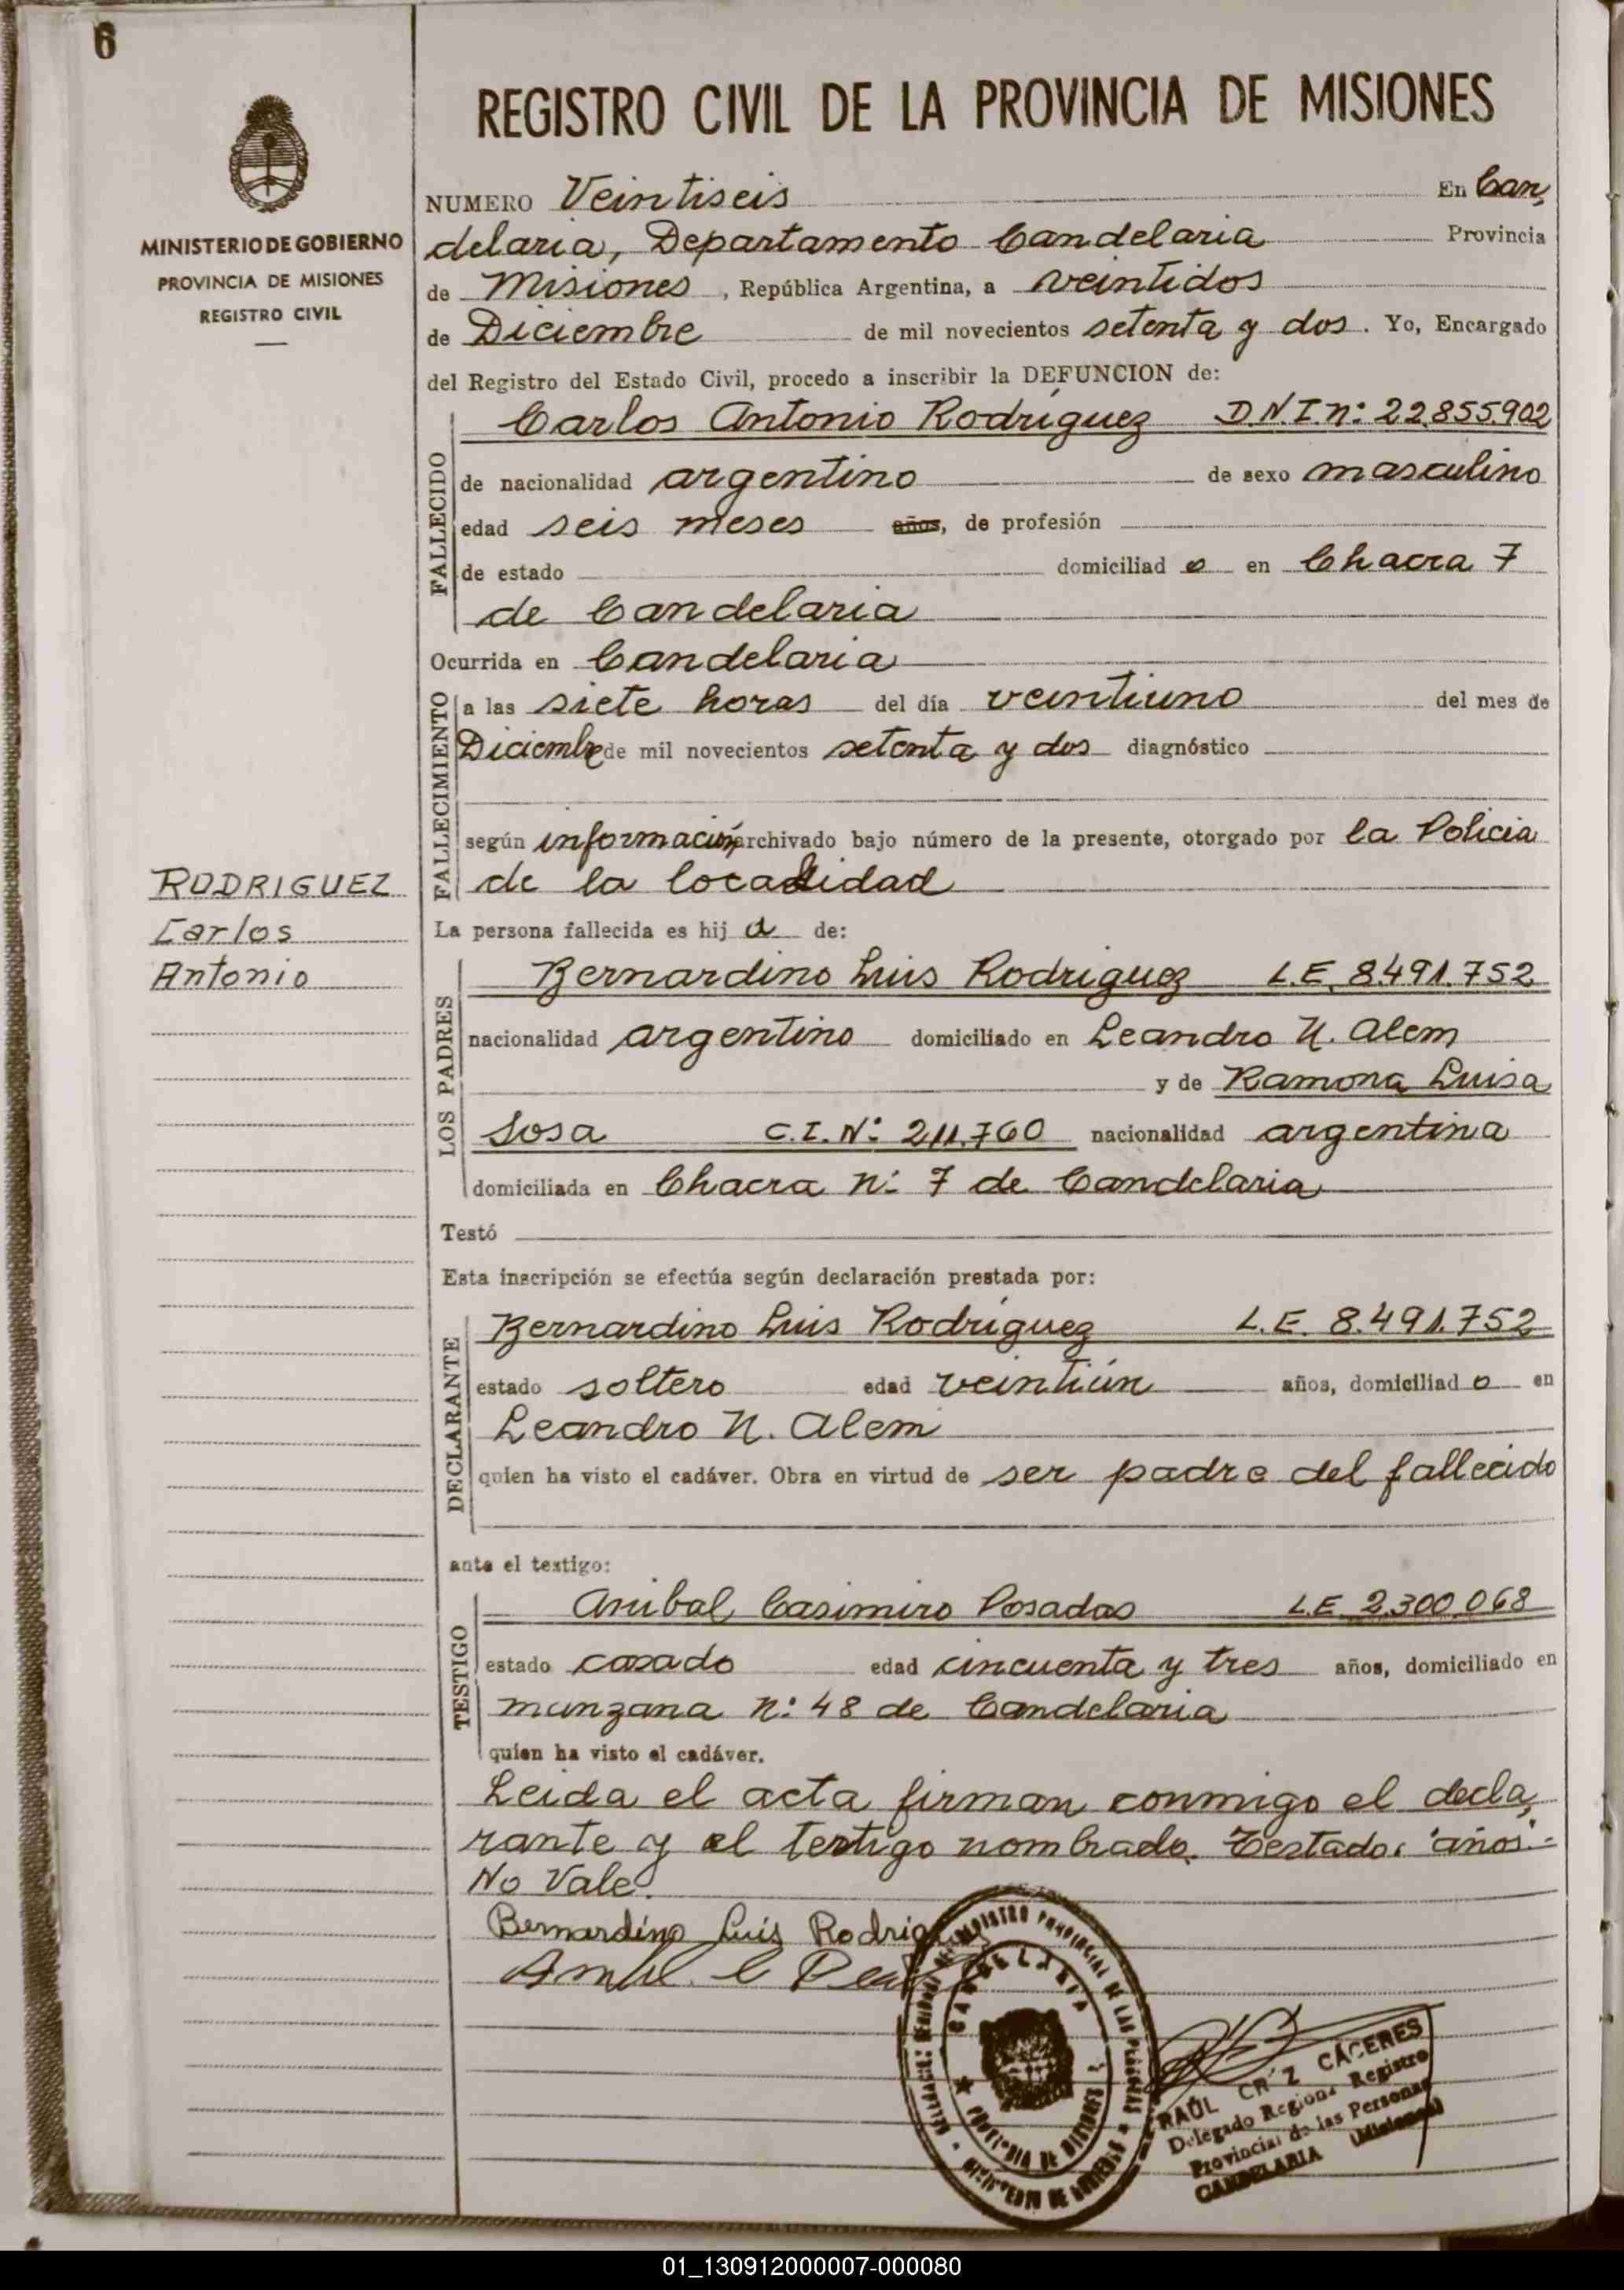 6
REGISTRO CIVIL DE LA PROVINCIA DE MISIONES
MINISTERIO DE GOBIERNO
PROVINCIA DE MISIONES
REGISTRO CIVIL
NUMERO Veintiseis En Can,
delaria, Departamento Candelaria Provincia
de Misiones, República Argentina, a veintidos
de Diciembre de mil novecientos setenta y dos. Yo, Encargado
del Registro del Estado Civil, procedo a inscribir la DEFUNCION de:
FALLECIDO
Carlos Antonio Rodríguez D.N.I. n: 22.855.902
de nacionalidad argentino de sexo masculino
edad seis meses años, de profesión
de estado domiciliad o en Chacra 7
de Candelaria
Ocurrida en Candelaria
FALLECIMIENTO
a las siete horas del día veintiuno del mes de
Diciembre de mil novecientos setenta y dos diagnóstico
según información archivado bajo número de la presente, otorgado por la Policia
de la localidad
RODRIGUEZ
Carlos
Antonio
La persona fallecida es hij o de:
LOS PADRES
Bernardino Luis Rodriguez L.E. 8.491.752
nacionalidad argentino domiciliado en Leandro N. Alem
y de Ramona Luisa
Sosa C.I. N: 211.760 nacionalidad argentina
domiciliada en Chacra n: 7 de Candelaria
Testó
Esta inscripción se efectúa según declaración prestada por:
DECLARANTE
Bernardino Luis Rodríguez L.E. 8.491.752
estado soltero edad veintiún años, domiciliad o en
Leandro N. Alem
quien ha visto el cadáver. Obra en virtud de ser padre del fallecido
ante el testigo:
TESTIGO
Anibal Casimiro Posadas L.E. 2.300.068
estado casado edad cincuenta y tres años, domiciliado en
manzana n: 48 de Candelaria
quien ha visto el cadáver.
Leida el acta firman conmigo el decla,
rante y el testigo nombrado. Testado: "años".-
No Vale.
Bernardino Luis Rodriguez
CANDELARIA
PROVINCIA DE MISIONES
RAÚL CRUZ CÁCERES
Delegado Regional Registro
Provincial de las Personas
CANDELARIA (Misiones)
01_130912000007-000080